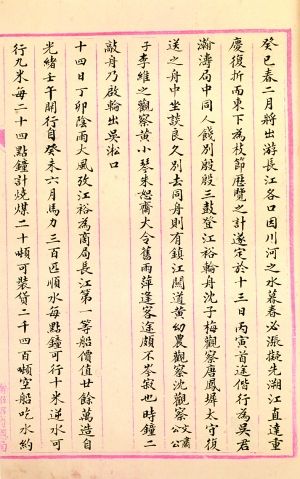 癸巳春二月將出游長江各口因川河之水暮春必漲擬先溯江直達重
慶復折而東下為枝節歷覽之計遂定於十三日丙寅首途偕行為吳君
瀚濤局中同人餞別殷殷三鼓登江裕輪舟沈子梅觀察唐鳳墀太守復
送之舟中坐談良久別去同舟則有鎮江關道黃幼農觀察沈觀察文肅公公
子李維之觀察黃小琴朱恕齋大令舊雨萍逢客途頗不岑寂也時鐘二
敲舟乃啟輪出吳淞口
十四日丁卯陰雨大風弢江裕為商局長江第一等船價值廿餘萬造自
光緒壬午開行自癸未六月馬力三百匹順水每點鐘可行十米逆水可
行九米每二十四點鐘計燒煤二十噸可裝貨二千四百噸空船吃水約